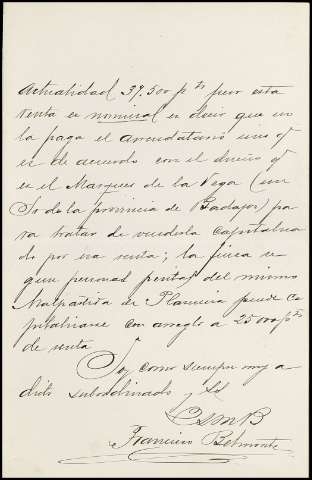 Actualidad 37.500 pts pero esta
renta es nominal es decir que no
la paga el arrendatario sino q̃
es de acuerdo con el dueño q̃
es el Marques de la Vega (un
Sr. de la provincia de Badajoz) pa
ra tratar de venderla capitaliza
do por esa renta; la finca se
gun personas peritas del mismo
de Plasencia puede ca
pitalizarse con arreglo a 25000 pts
de renta
Soy como siempre muy a
dicto subordinado y SS
QSMB
Francisco Belmonte